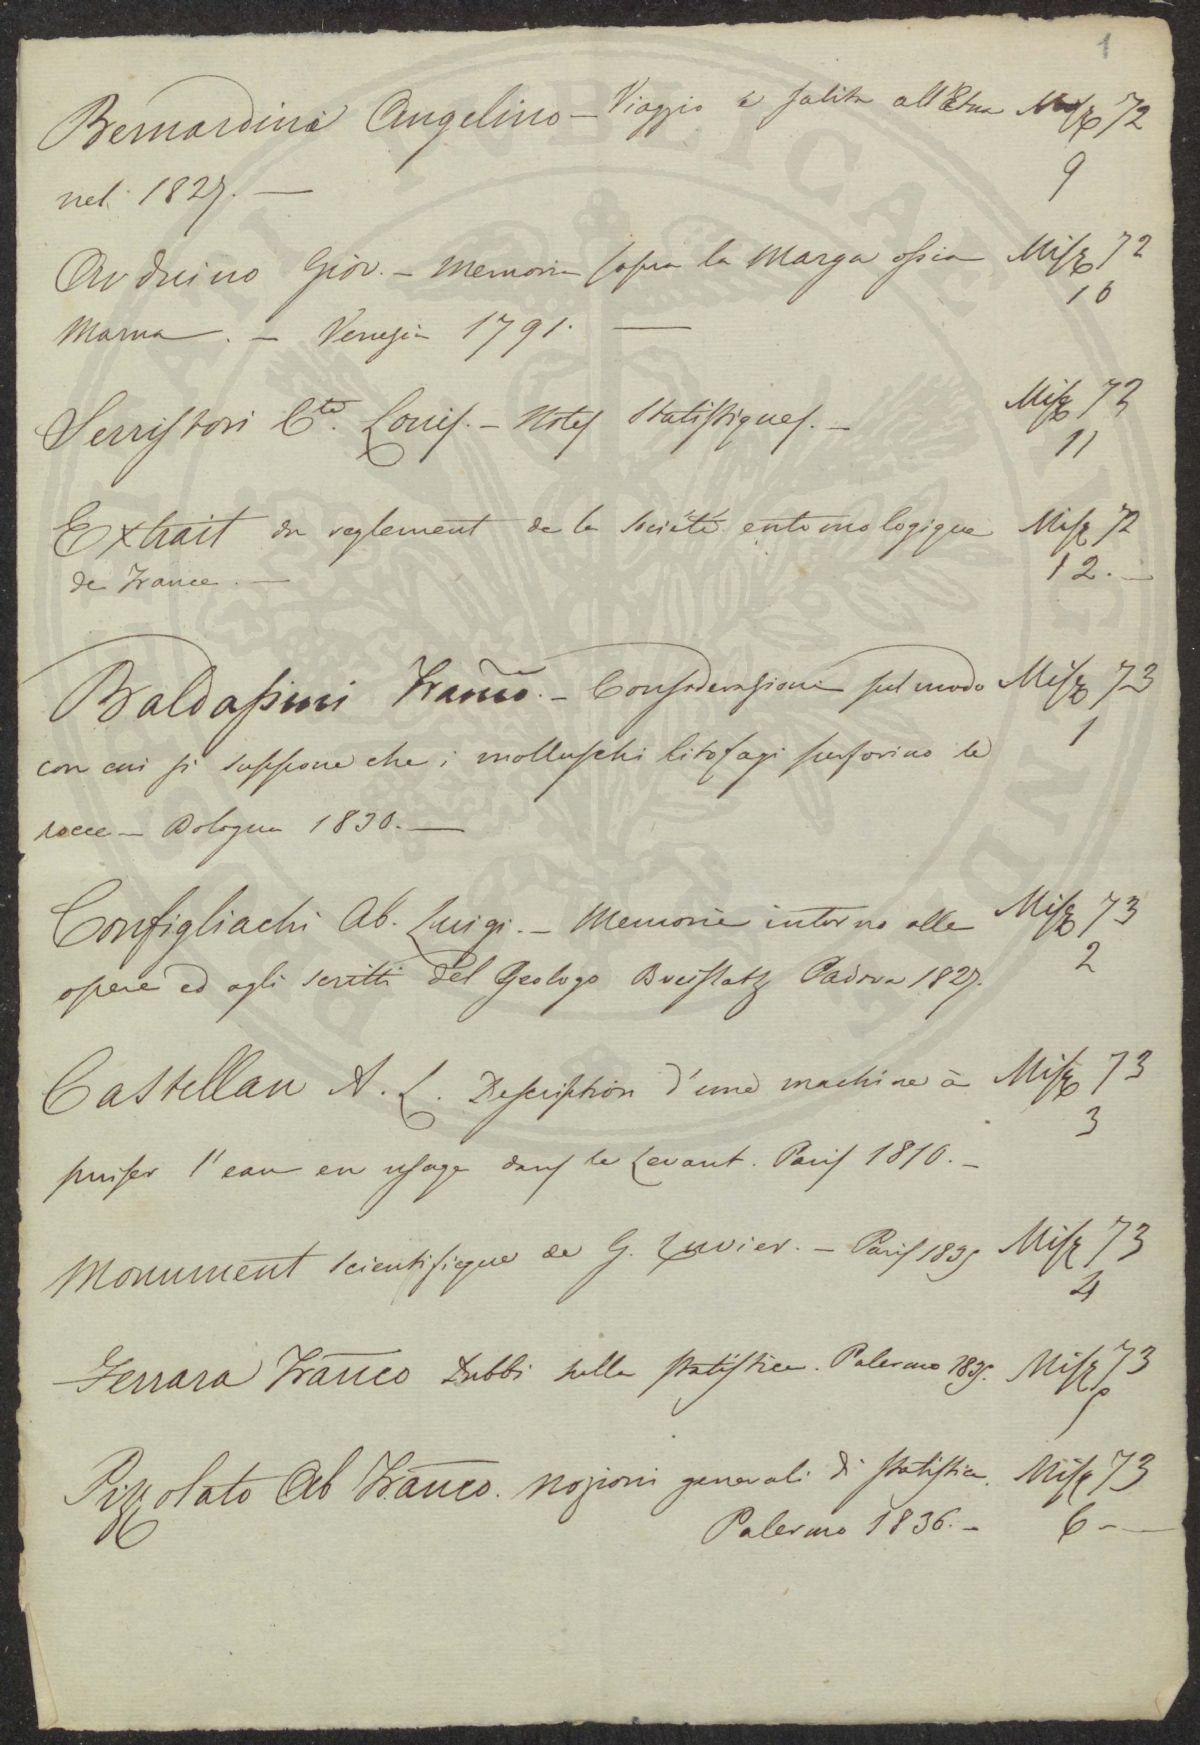 1
Bernardini Angelino – Viaggio e salita all'Etna Misc 72
nel 1827. — 9
Arduino Giov. – Memoria sopra la Marga ossia Misc 72
Marna. – Venezia 1791. — 10
Serristori Cte. Louis. – Notes statistiques. – Misc 72
11
Extrait du reglement de la société entomologique Misc 72
de France. — 12. –
Baldassini Franco. – Considerazioni sul modo Misc 73
con cui si suppone che i molluschi litofagi perforino le 1
rocce – Bologna 1830. —
Configliachi Ab. Luigi. – Memorie intorno alle Misc 73
opere ed agli scritti del Geologo Breislatz Padova 1827. 2
Castellan A. L. Description d'une machine à Misc 73
3
puiser l'eau en usage dans le Levant. Paris 1810. –
Monument scientifique de G. Cuvier. – Paris 1835 Misc 73
4
Ferrara Franco Dubbi sulla statistica. Palermo 1835. Misc 73
5
Pizzolato Ab Franco. nozioni generali di statistica. Misc 73
Palermo 1836. – 6 –
BIBLIOTHECAE PUBLICAE LUGD